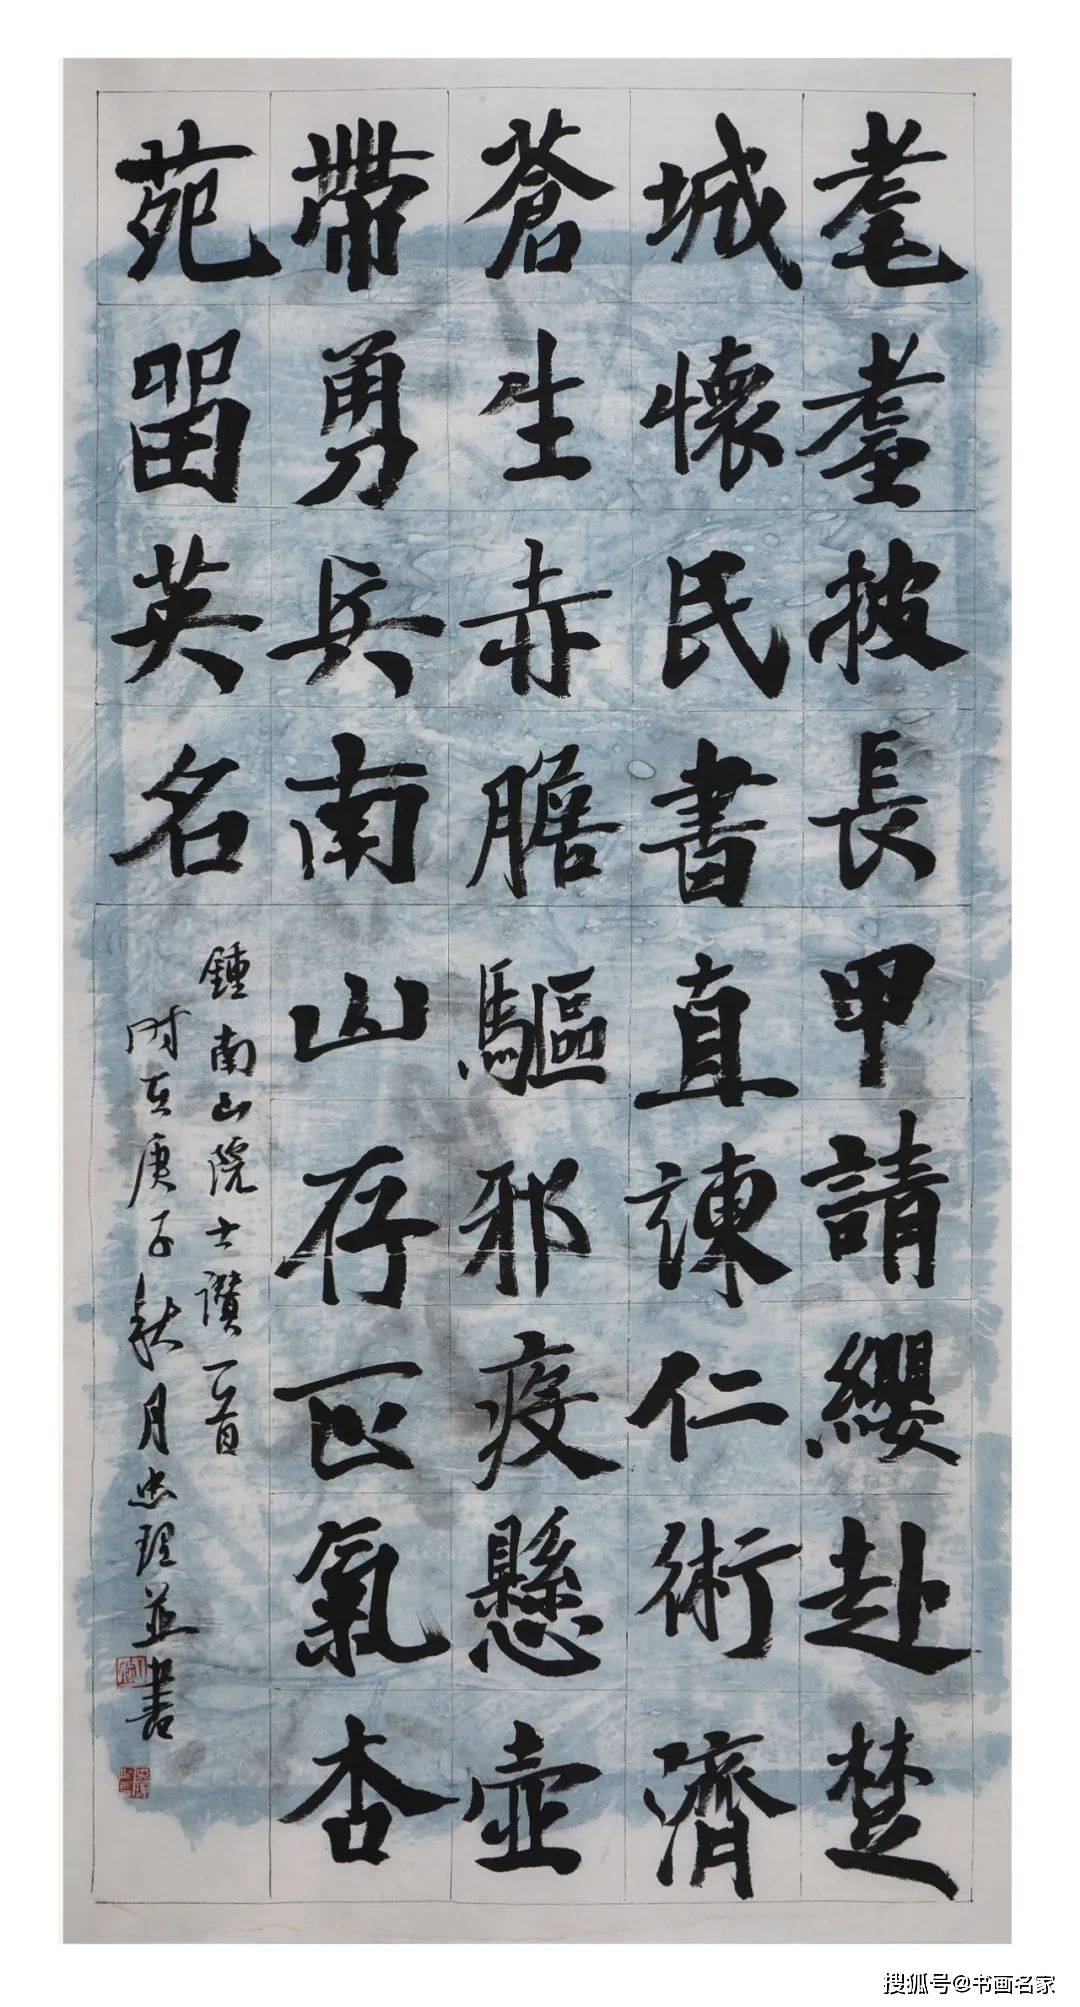 耄耋披長甲請纓赴楚
城懷民書直諫仁術濟
蒼生赤膽驅邪疫懸壺
帶勇兵南山存正氣杏
苑留英名
鍾南山院士讚一首
时在庚子秋月忠理並書
搜狐号@书画名家